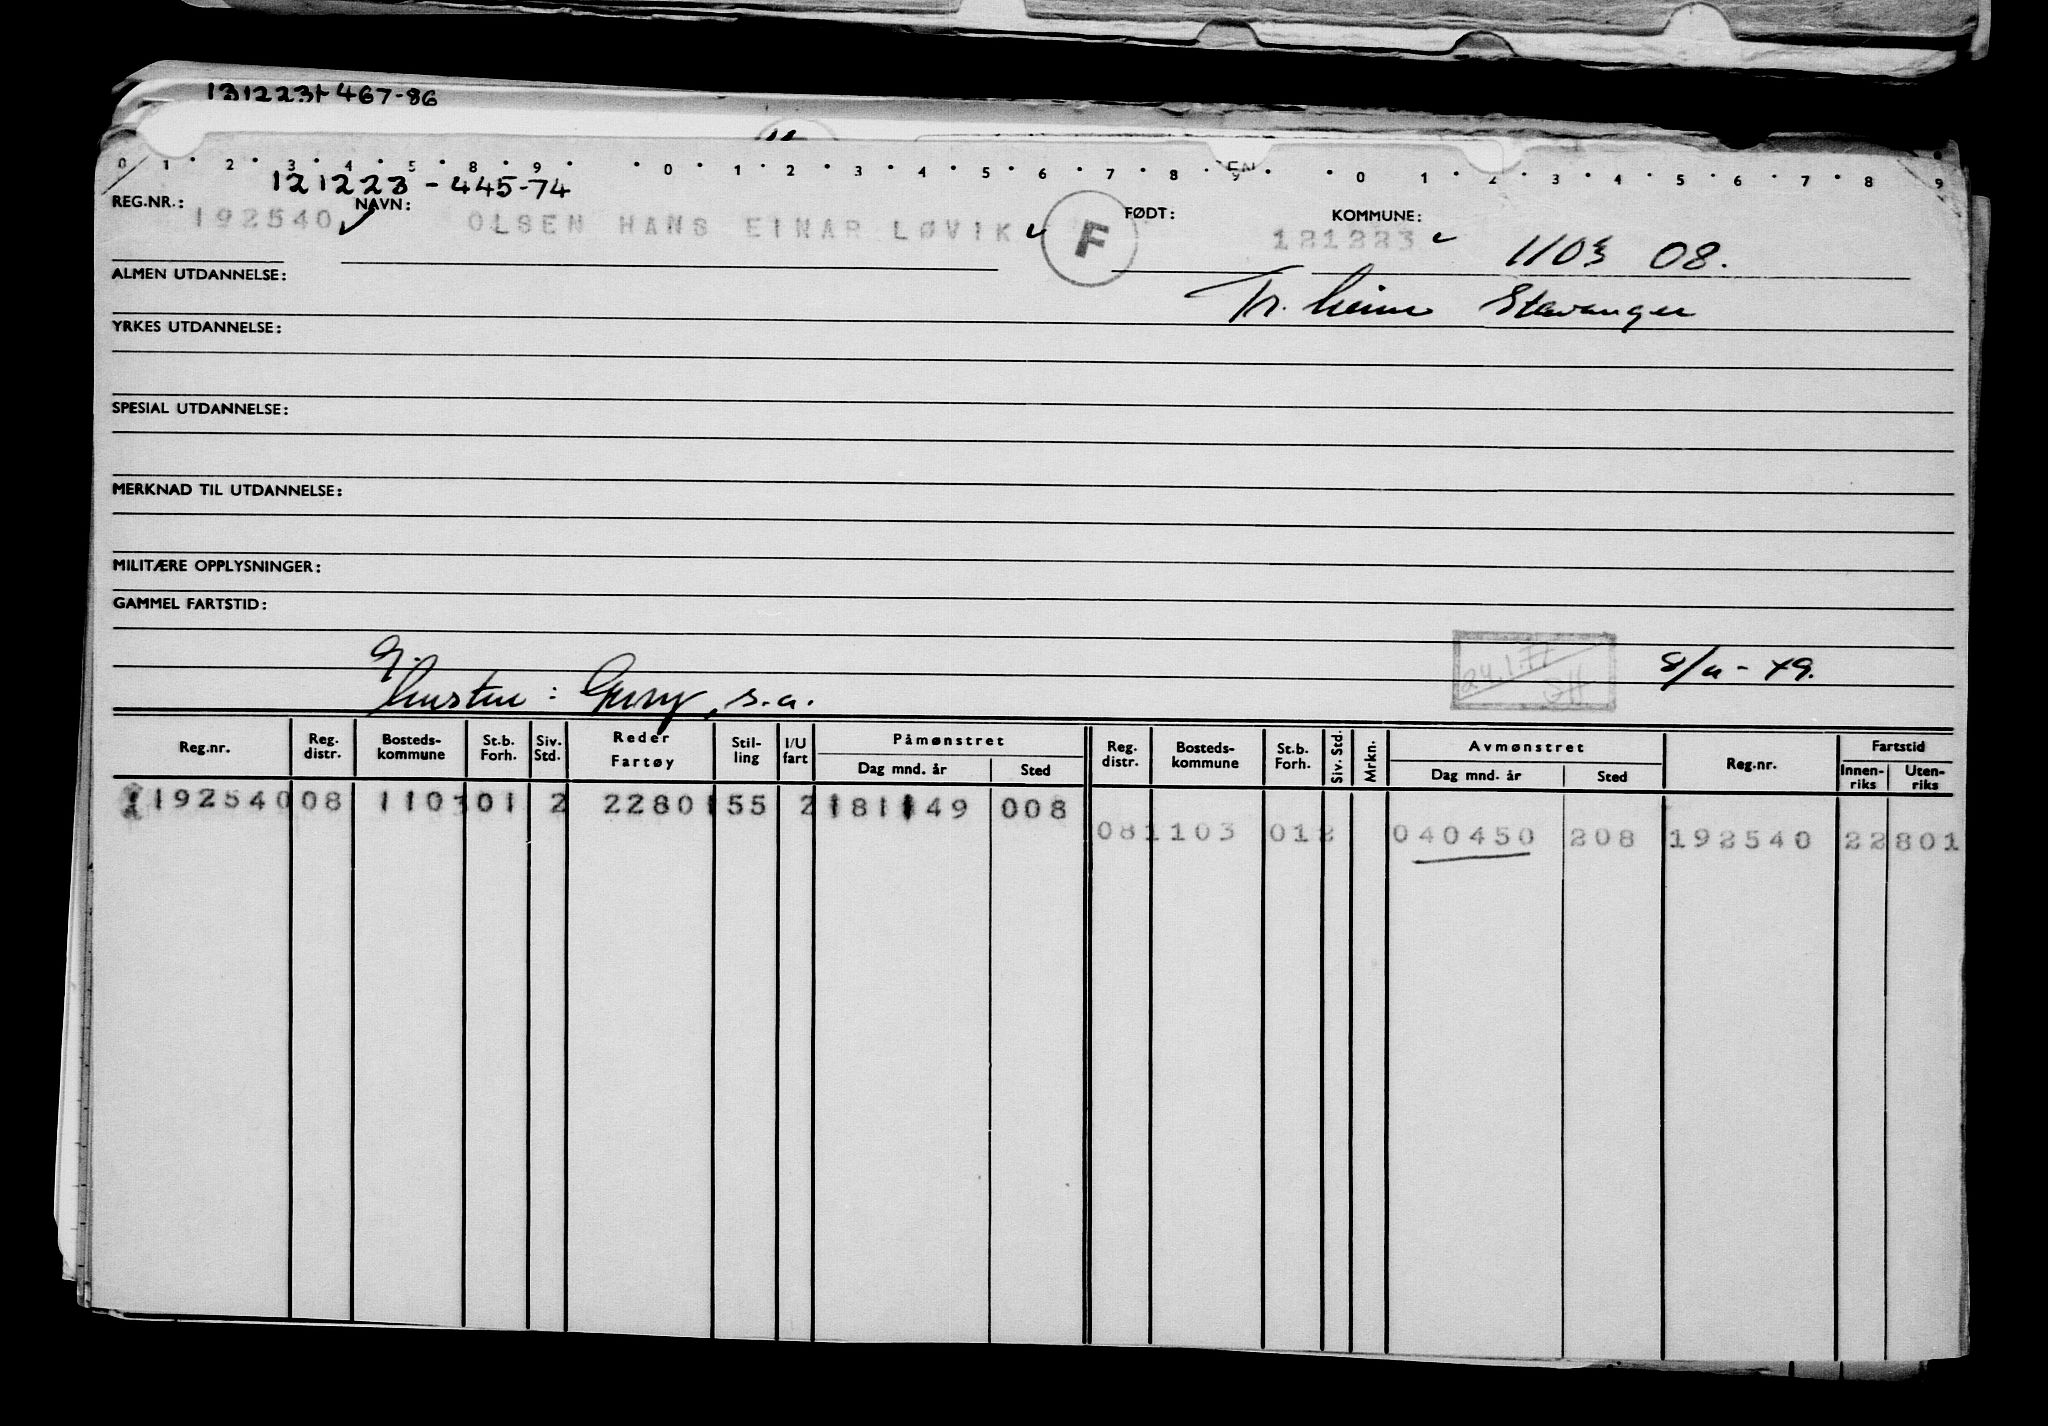 131223+ 467-86
0 1 2 3 4 5 8 9 0 1 2 3 4 5 6 7 8 9 0 1 2 3 4 5 6 7 8 9
121223 - 445-74
REG.NR.: 192540 NAVN: OLSEN HANS EINAR LØVIK F FØDT: 121223 KOMMUNE: 1103 08.
ALMEN UTDANNELSE: Stavanger
YRKES UTDANNELSE:
SPESIAL UTDANNELSE:
MERKNAD TIL UTDANNELSE:
MILITÆRE OPPLYSNINGER:
GAMMEL FARTSTID:
24.1.77
s.a.
Reg.nr. Reg. distr. Bosteds-kommune St.b. Forh. Siv. Std. Reder Fartøy Stil-ling I/U fart Påmønstret Dag mnd. år Sted Reg. distr. Bosteds-kommune St.b. Forh. Siv. Std. Mrkn. Avmønstret Dag mnd. år Sted Reg.nr. Fartstid Innen-riks Uten-riks
192540 08 1103 01 2 22801 55 2 181149 008
08 1103 01 2 040450 208 192540 22801